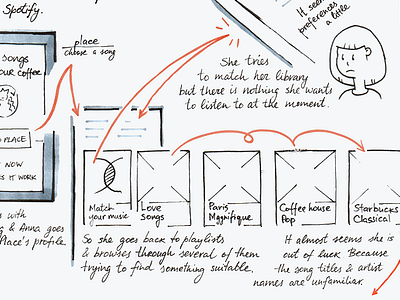 Spotify.
SONGS
OUR COFFEE
place
choose a song
O PLACE
NOW
ES IT WORK
It seems
preferences
a little
She tries
to match her library
but there is nothing she wants
to listen to at the moment.
Match
your music
Love
songs
Paris
Magnifique
Coffee house
Pop
Starbucks
Classical
s with
g & Anna goes
Place's profile.
So she goes back to playlists
& browses through several of them
trying to find something suitable.
It almost seems she is
out of luck Because
the song titles & artist
names are unfamiliar.